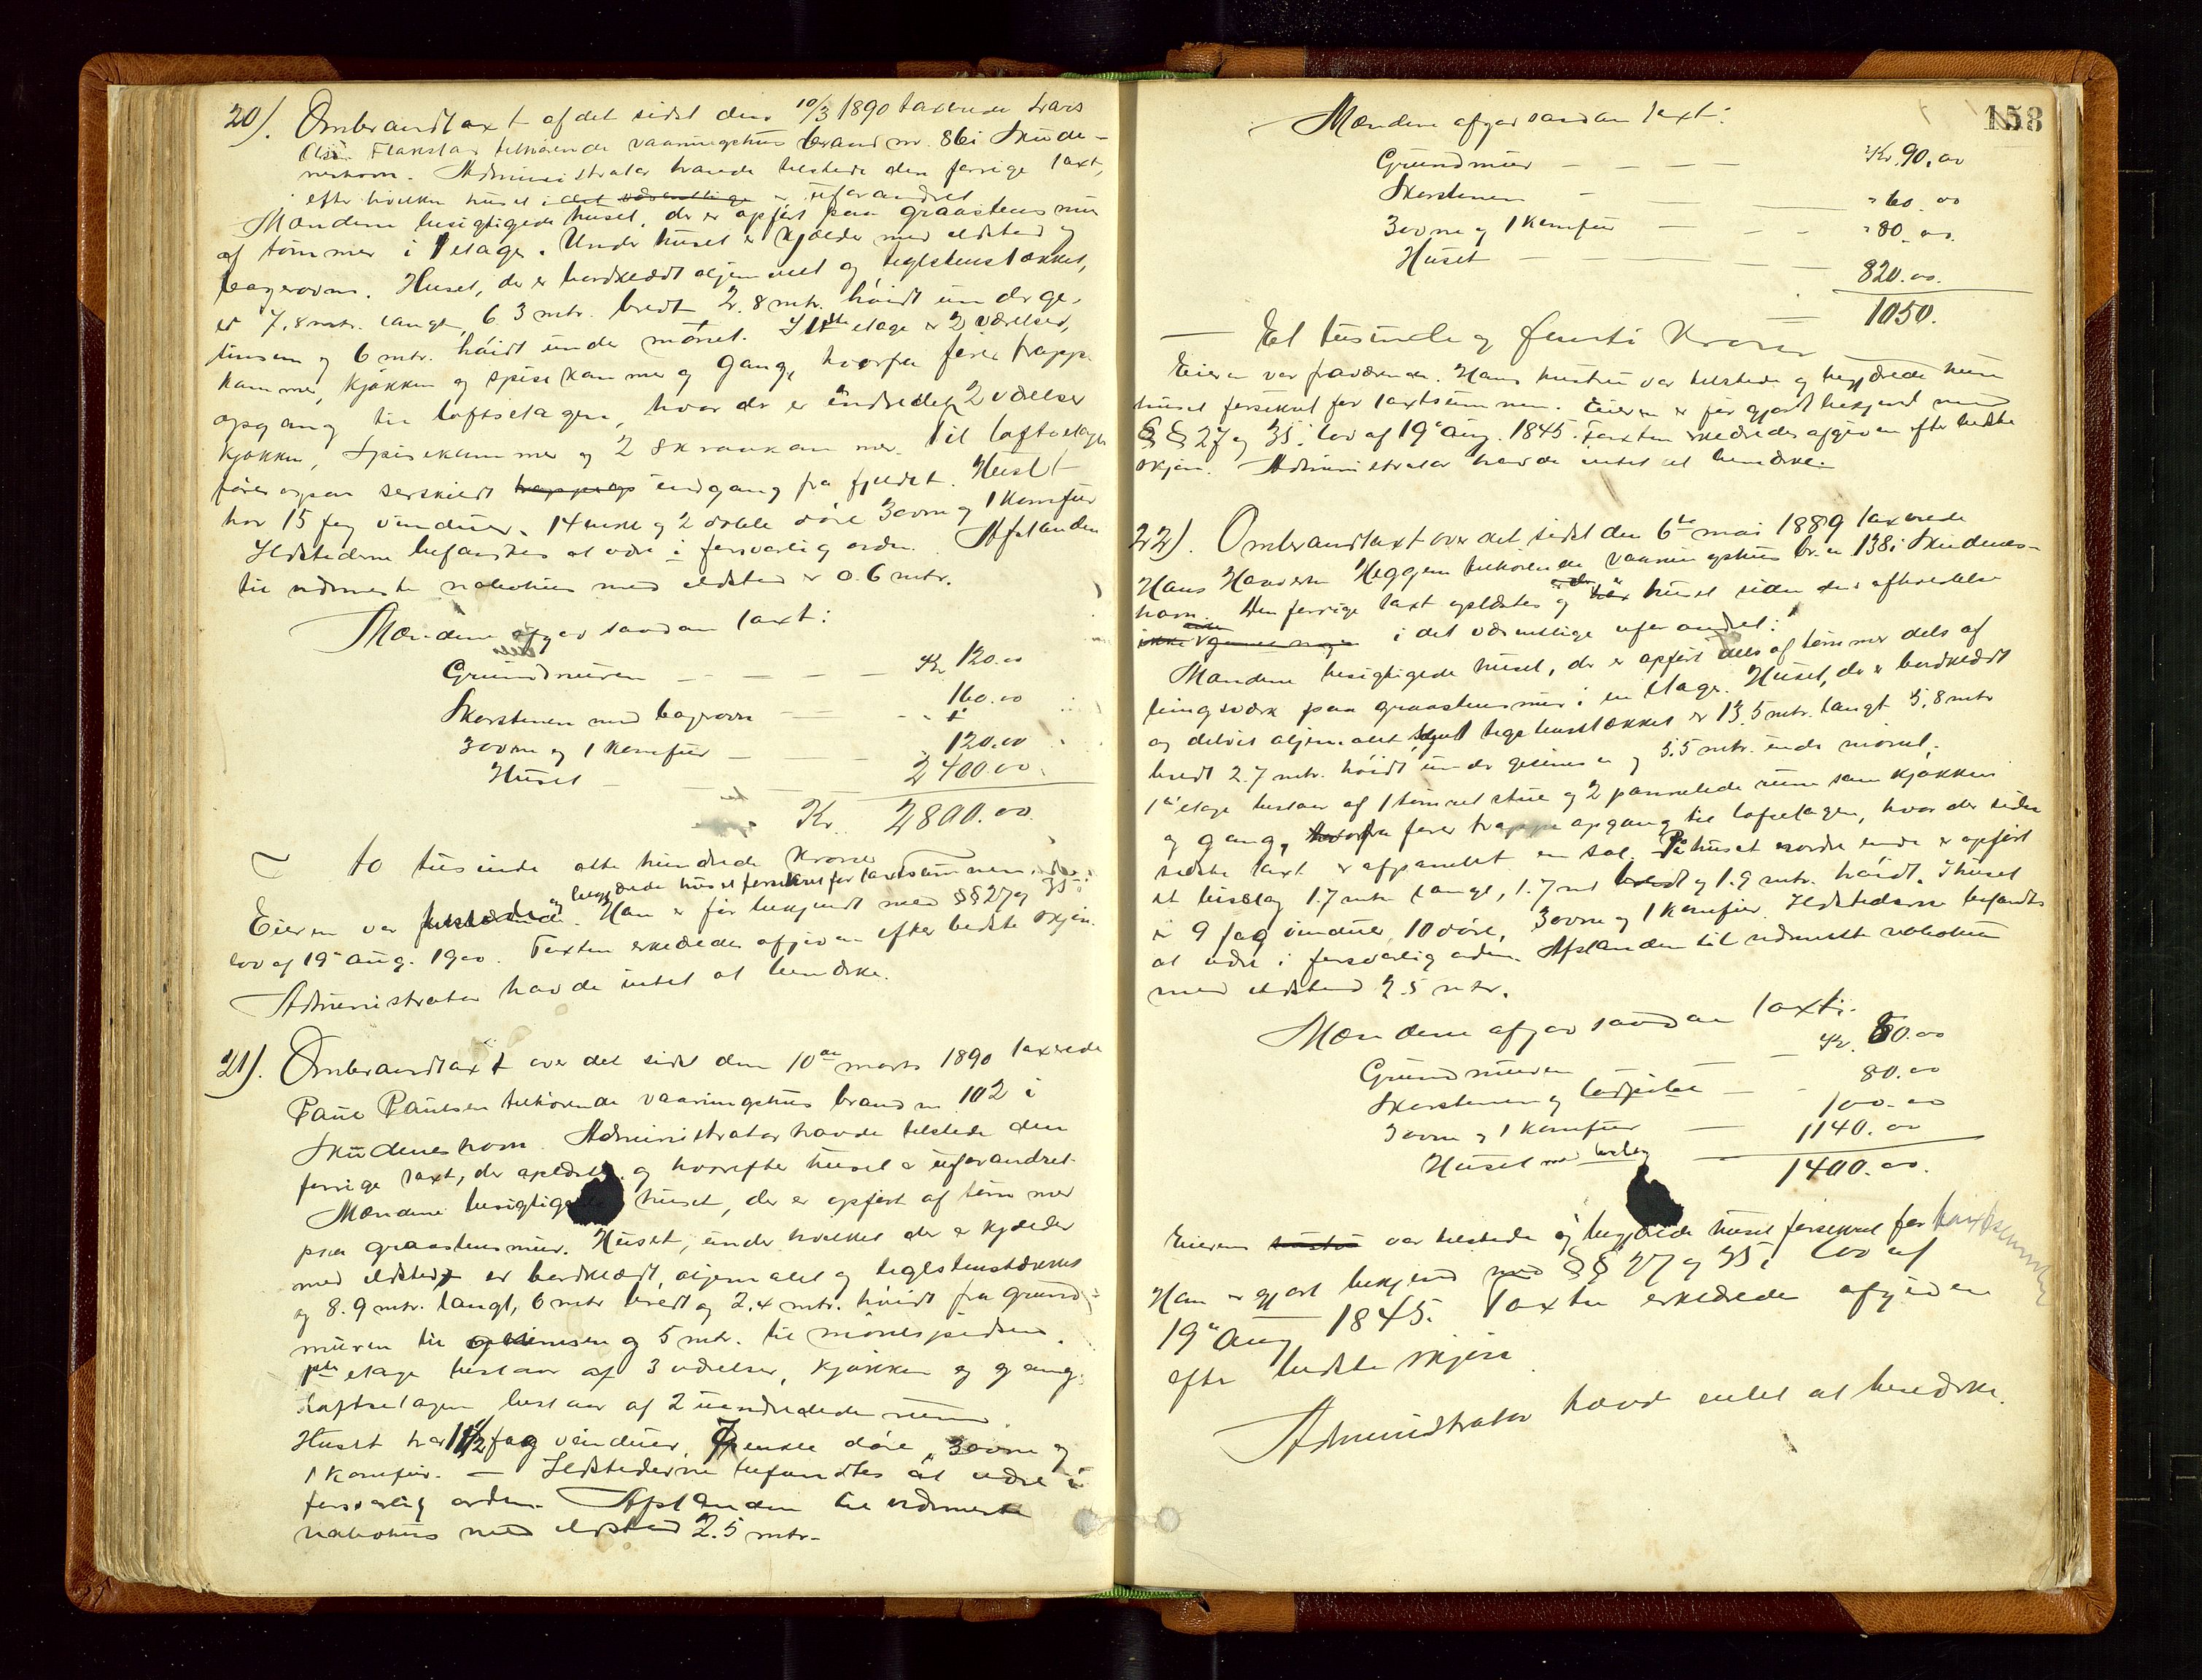 20). Ombrandtaxt af det sidst den 10/3 1890 taxerede Lars
Olsen Flakstad tilhørende vaaningshus brand nr. 86 i Skude-
neshavn. Administrator havde tilstede den forrige taxt,
efter hvilken huset i det væsentlige er uforandret
Mændene besigtigede huset, der er opført paa graastens mur
af tømmer i 1 etage. Under huset er kjælder med ildsted og
bagerovn. Huset, der er bordklædt oljemalet og teglstenstækket,
er 7,8 mtr. langt, 6.3 mtr. bredt 2.8 mtr. høidt under ge-
simsen og 6 mtr. høidt under mønet. I 1ste etage er 2 værelser,
kammer, kjøkken og spisekammer og gang, hvorfra fører trappe
opgang til loftsetagen, hvor der er indredet 2 værelser
kjøkken, spisekammer og 2 skraakammer. Til loftsetagen
fører ogsaa serskildt trappeop indgang fra fjeldet. Huset
har 15 fag vinduer, 14 enkle og 2 doble døre 3 ovne og 1 komfur
Ildstederne befandtes at være i forsvarlig orden. Afstanden
til nærmeste nabohus med ildsted er 0.6 mtr.
Mændene afgav saadan taxt:
Grundmuren — — — — Kr 120.00
Skorstenen med bagerovn — — 160.00
3 ovne og 1 komfur — — 120.00
Huset — 2400.00
Kr. 2800.00
to tusinde otte hundrede Kroner
og begjærede huset forsikret for taxtsummen
Eieren var tilstede. Han er før bekjendt med §§ 27 og 35 i
lov af 19 Aug. 1900. Taxten erklæredes afgiven efter bedste skjøn.
Administrator havde intet at bemærke.
21). Ombrandtaxt over det sidst den 10de marts 1890 taxerede
Paul Paulsen tilhørende vaaningshus brand nr 102 i
Skudeneshavn. Administrator havde tilstede den
forrige taxt, der oplæstes og hvorefter huset er uforandret.
Mændene besigtigede huset, der er opført af tømmer
paa graastensmur. Huset, under hvilket der er kjælder
med ildsted er bordklædt, oljemalet og teglstenstækket
og 8.9 mtr. langt, 6 mtr bredt og 2.4 mtr. høidt fra grund-
muren til gesimsen og 5 mtr. til mønespidsen.
1ste etage bestaar af 3 værelser, kjøkken og gang.
Loftsetagen bestaar af 2 uindredede rum.
Huset har 11 1/2 fag vinduer, 7 enkle døre, 3 ovne og
1 komfur. — Ildstederne befandtes at være i
forsvarlig orden. Afstanden til nærmeste
nabohus med ildsted 2.5 mtr.
158
Mændene afgav saadan taxt:
Grundmur — — — — Kr. 90.00
Skorstenen — — " 60.00
3 ovne og 1 komfur — — — " 80.00
Huset — — 820.00
1050.
Et tusinde og femti Kroner
Eieren var fraværende. Hans hustru var tilstede og begjærede hun
huset forsikret for taxtsummen. Eieren er før gjort bekjent med
§§ 27 og 35 i lov af 19de Aug. 1845. Taxten erklæredes afgiven efter bedste
skjøn. Administrator havde intet at bemærke.
22). Ombrandtaxt over det sidst den 6te mai 1889 taxerede
Hans Hansen Heggem tilhørende vaaningshus br. nr 138 i Skudenes-
havn. Den forrige taxt oplæstes og er huset siden dens afholdelse
i det væsentlige uforandret.
Mændene besigtigede huset, der er opført dels af tømmer dels af
bingsværk paa graastensmur i en etage. Huset, der er bordklædt
og delvis oljemalet samt teglstenstækket er 13,5 mtr. langt 5,8 mtr
bredt 2.7 mtr. høidt under gesimsen og 5.5 mtr. under mønet.
1ste etage bestaar af 1 tømret stue og 2 pannelede rum samt kjøkken
og gang, hvorfra fører trappe opgang til loftsetagen, hvor der siden
sidste taxt er afpanellet en sal. Paa huset nordre ende er opført
et bislag 1.7 mtr. langt, 1.7 mtr bredt og 1.9 mtr. høidt. I huset
er 9 fag vinduer, 10 døre, 3 ovne og 1 komfur. Ildstederne befandtes
at være i forsvarlig orden. Afstanden til nærmeste nabohus
med ildsted 2.5 mtr.
Mændene afgav saadan taxt:
Grundmuren — — Kr. 80.00
Skorstenen og — 80.00
3 ovne og 1 komfur — 100.00
Huset med bislag — 1140.00
1400.00.
Eieren hustru var tilstede og begjærede huset forsikret for taxtsummen
Han er gjort bekjend med §§ 27 og 35 i lov af
19de Aug 1845. Taxten erklæredes afgiven
efter bedste skjøn
Administrator havde intet at bemærke.